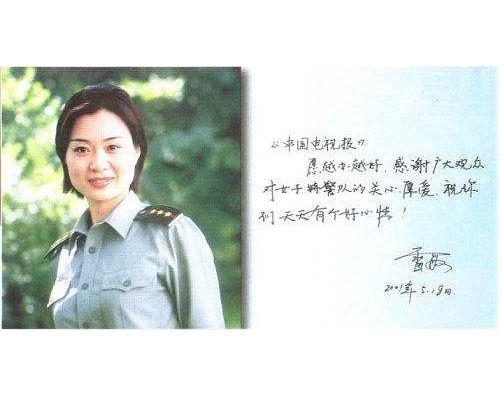 《中国电视报》
愿越办越好,感谢广大观众
对女子特警队的关心、厚爱,祝你
们天天有个好心情!
雷敏
2001年5.18日